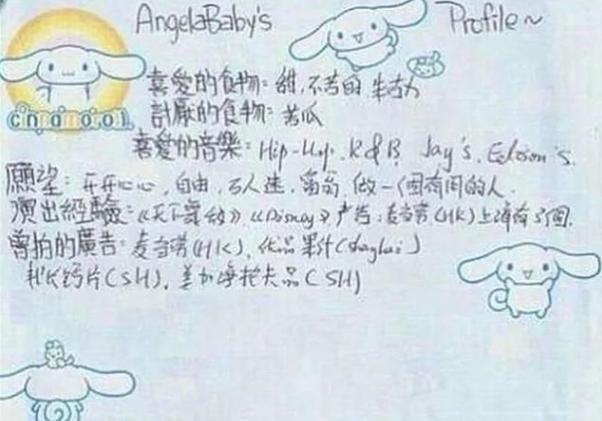 AngelaBaby's Profile~
cinnamoroll
喜愛的食物: 甜, 不苦的 朱古力
討厭的食物: 苦瓜
喜愛的音樂: Hip-Hop. R&B. Jay's. Edison's.
願望: 开开心心, 自由, 万人迷, 做一個有用的人.
演出經驗: 《天下無敌》《Disney》广告: 麦当劳(HK)上海有3個.
曾拍的廣告: 麦当劳(HK), 优品果汁(Shanghai)
(SH), (SH)